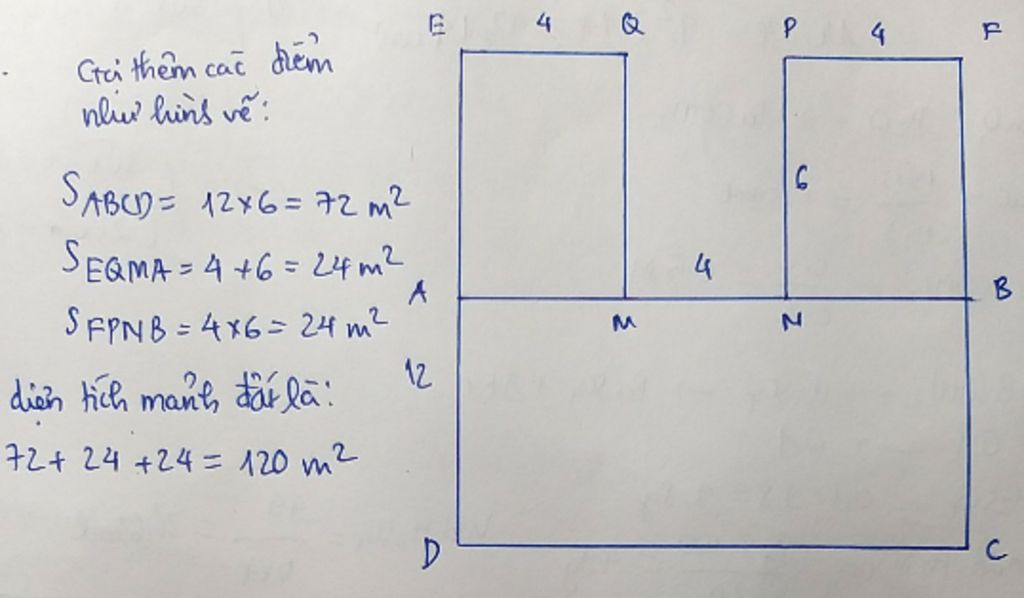 Gọi thêm các điểm
như hình vẽ:
S ABCD = 12 x 6 = 72 m²
S EQMA = 4 + 6 = 24 m²
S FPNB = 4 x 6 = 24 m²
diện tích mảnh đất là:
72 + 24 + 24 = 120 m²
E 4 Q P 4 F
6
4
A M N B
12
D C